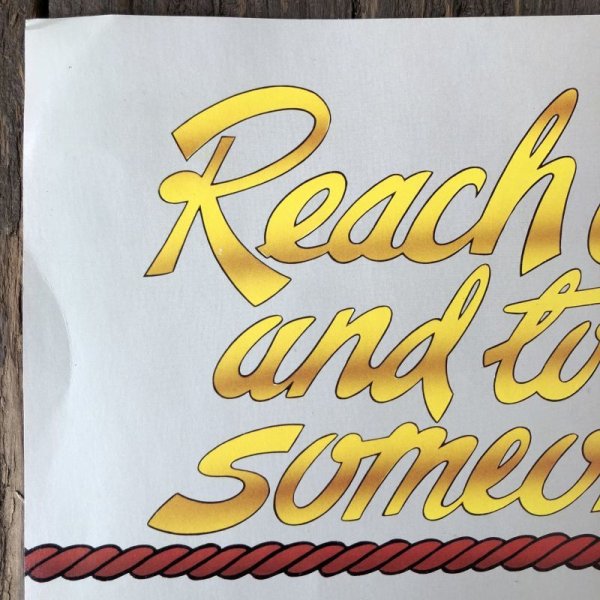 Reach
and to
someo